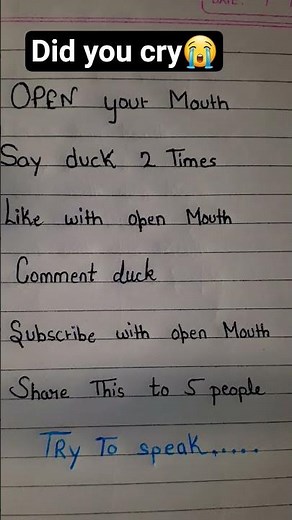 DATE:
Did you cry😭
OPEN your Mouth
Say duck 2 Times
Like with open Mouth
Comment duck
Subscribe with open Mouth
Share This to 5 people
TRy To speak.....